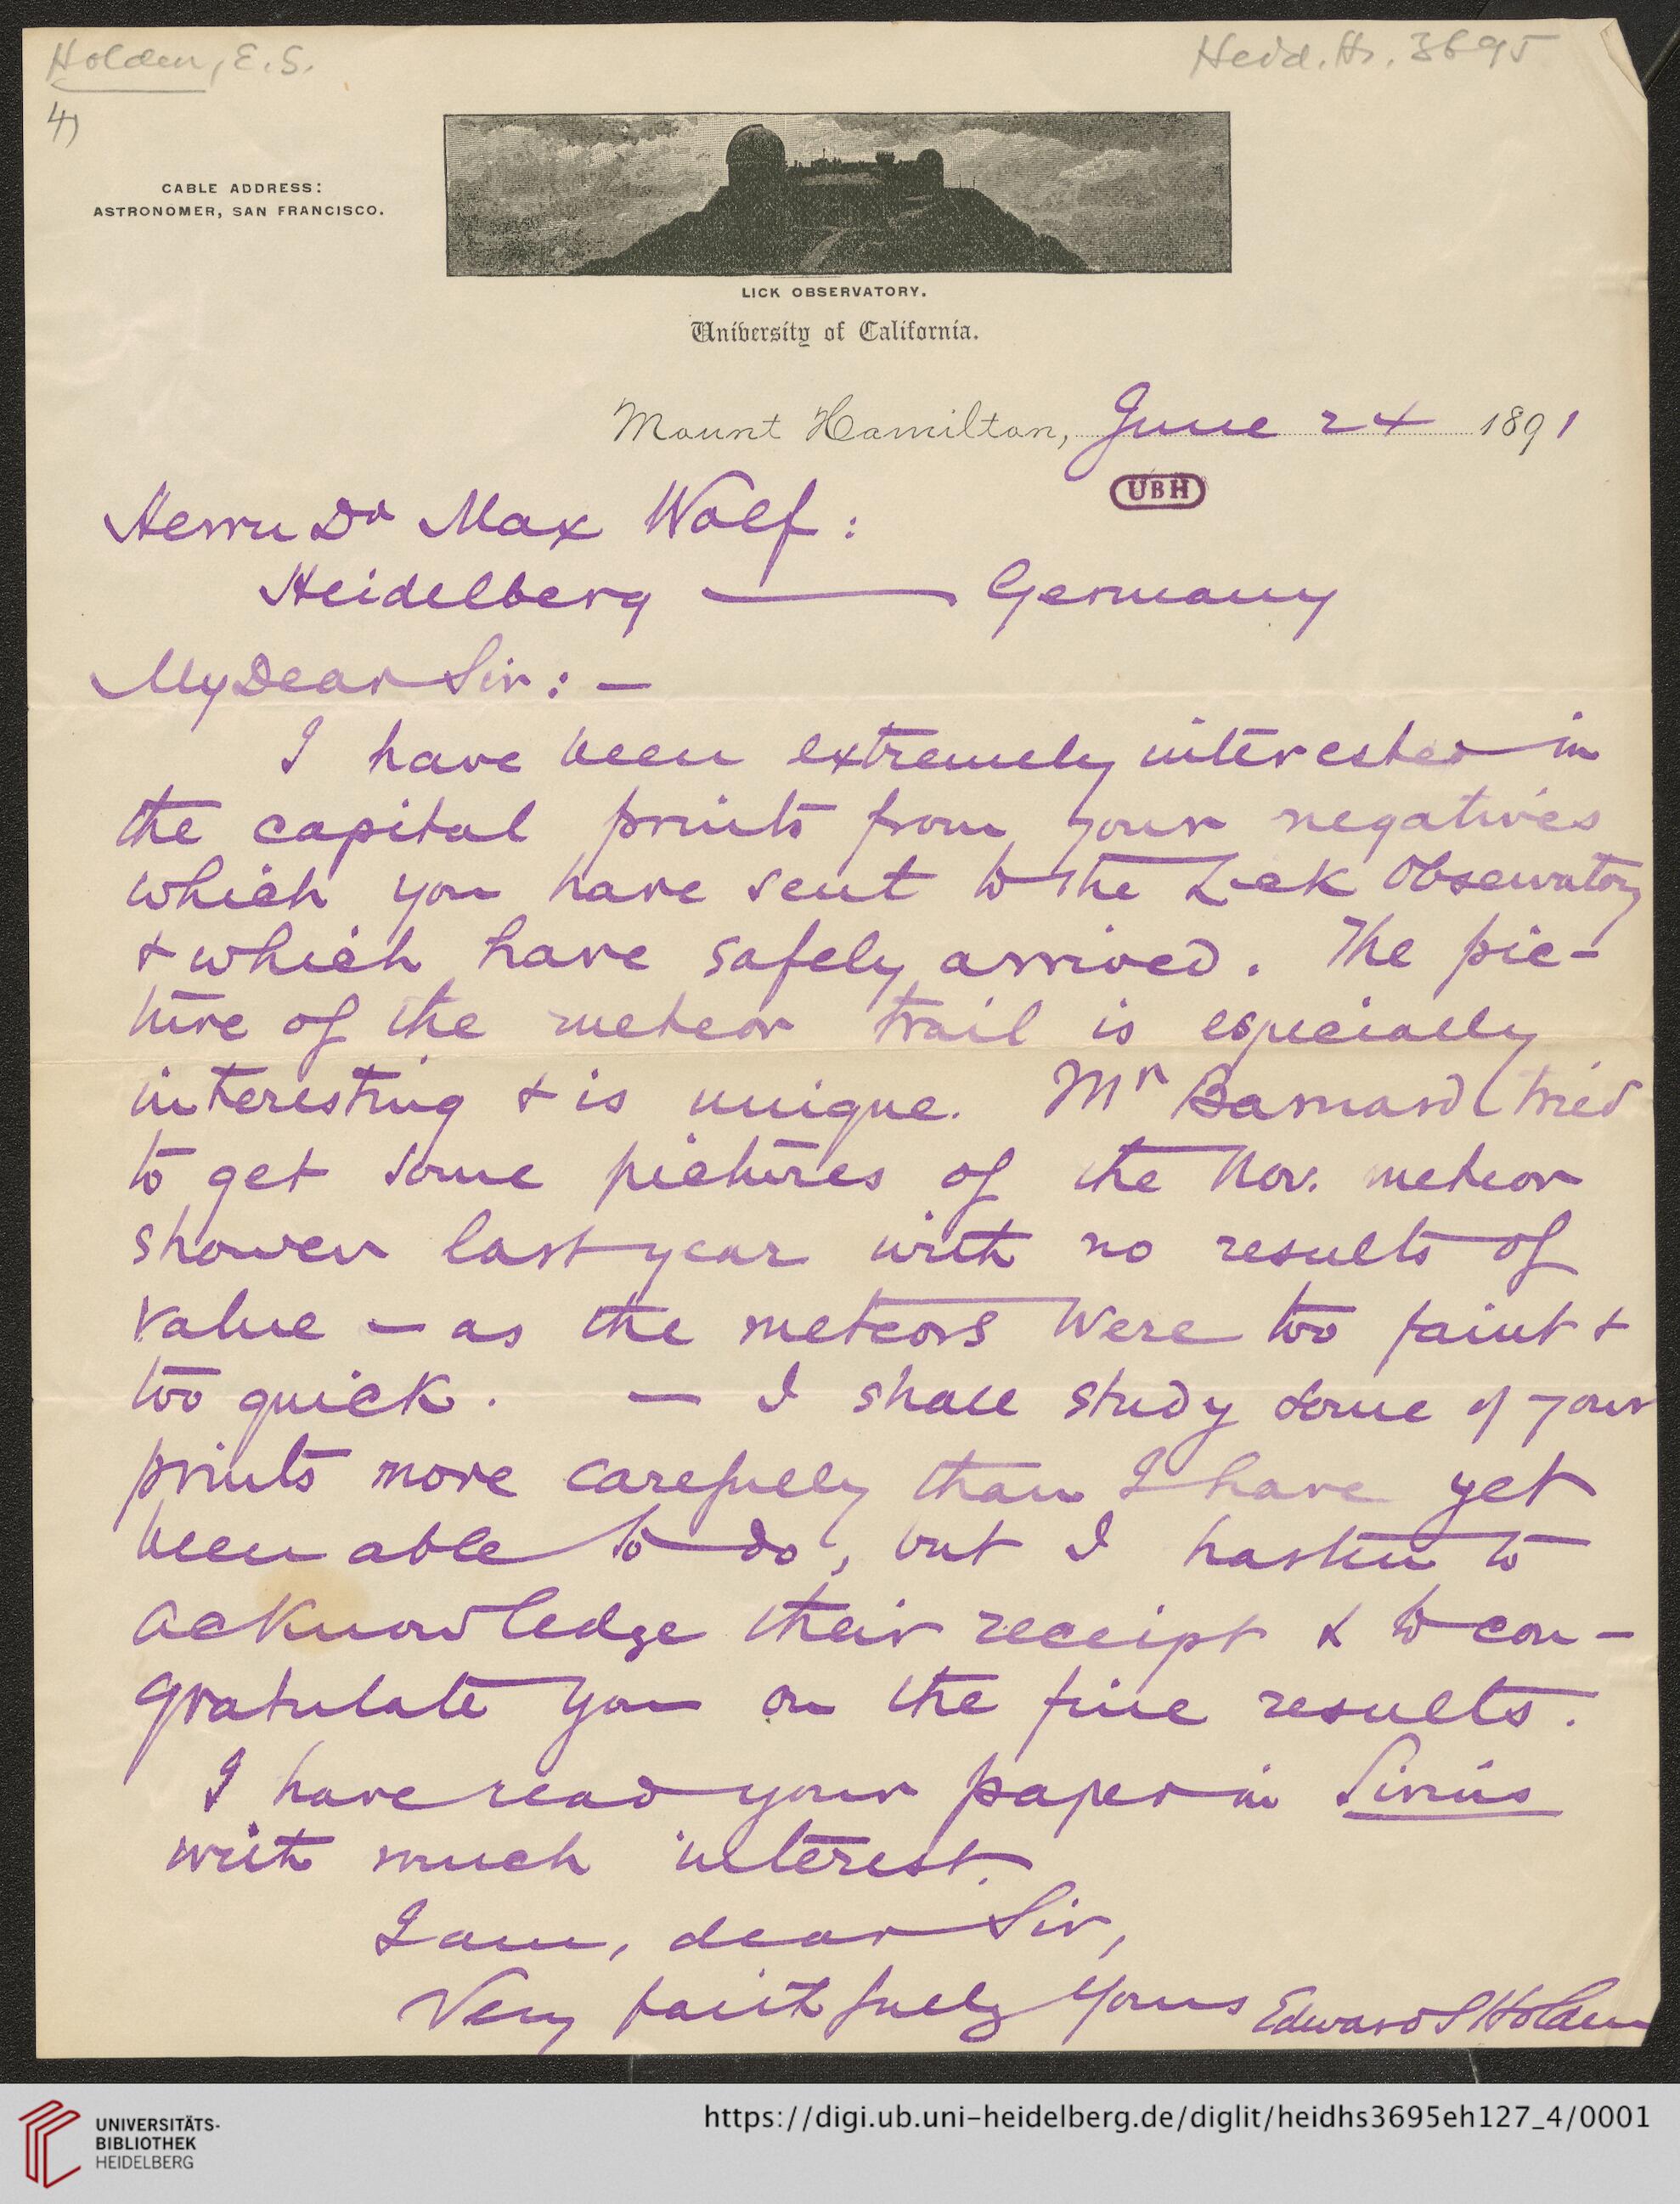 Holden, E.S.
Heid. Hs. 3695
4)
CABLE ADDRESS:
ASTRONOMER, SAN FRANCISCO.
LICK OBSERVATORY.
University of California.
Mount Hamilton, June 24 1891
UBH
Herrn Dr Max Wolf:
Heidelberg — Germany
My Dear Sir: —
I have been extremely interested in
the capital prints from your negatives
which you have sent to the Lick Observatory
& which have safely arrived. The pic-
ture of the meteor trail is especially
interesting & is unique. Mr Barnard tried
to get some pictures of the Nov. meteor
shower last year with no results of
value — as the meteors were too faint &
too quick. — I shall study some of your
prints more carefully than I have yet
been able to do, but I hasten to
acknowledge their receipt & to con-
gratulate you on the fine results.
I have read your paper in Sirius
with much interest.
I am, dear Sir,
Very faithfully Yours Edward S Holden
UNIVERSITÄTS-
BIBLIOTHEK
HEIDELBERG
https://digi.ub.uni-heidelberg.de/diglit/heidhs3695eh127_4/0001